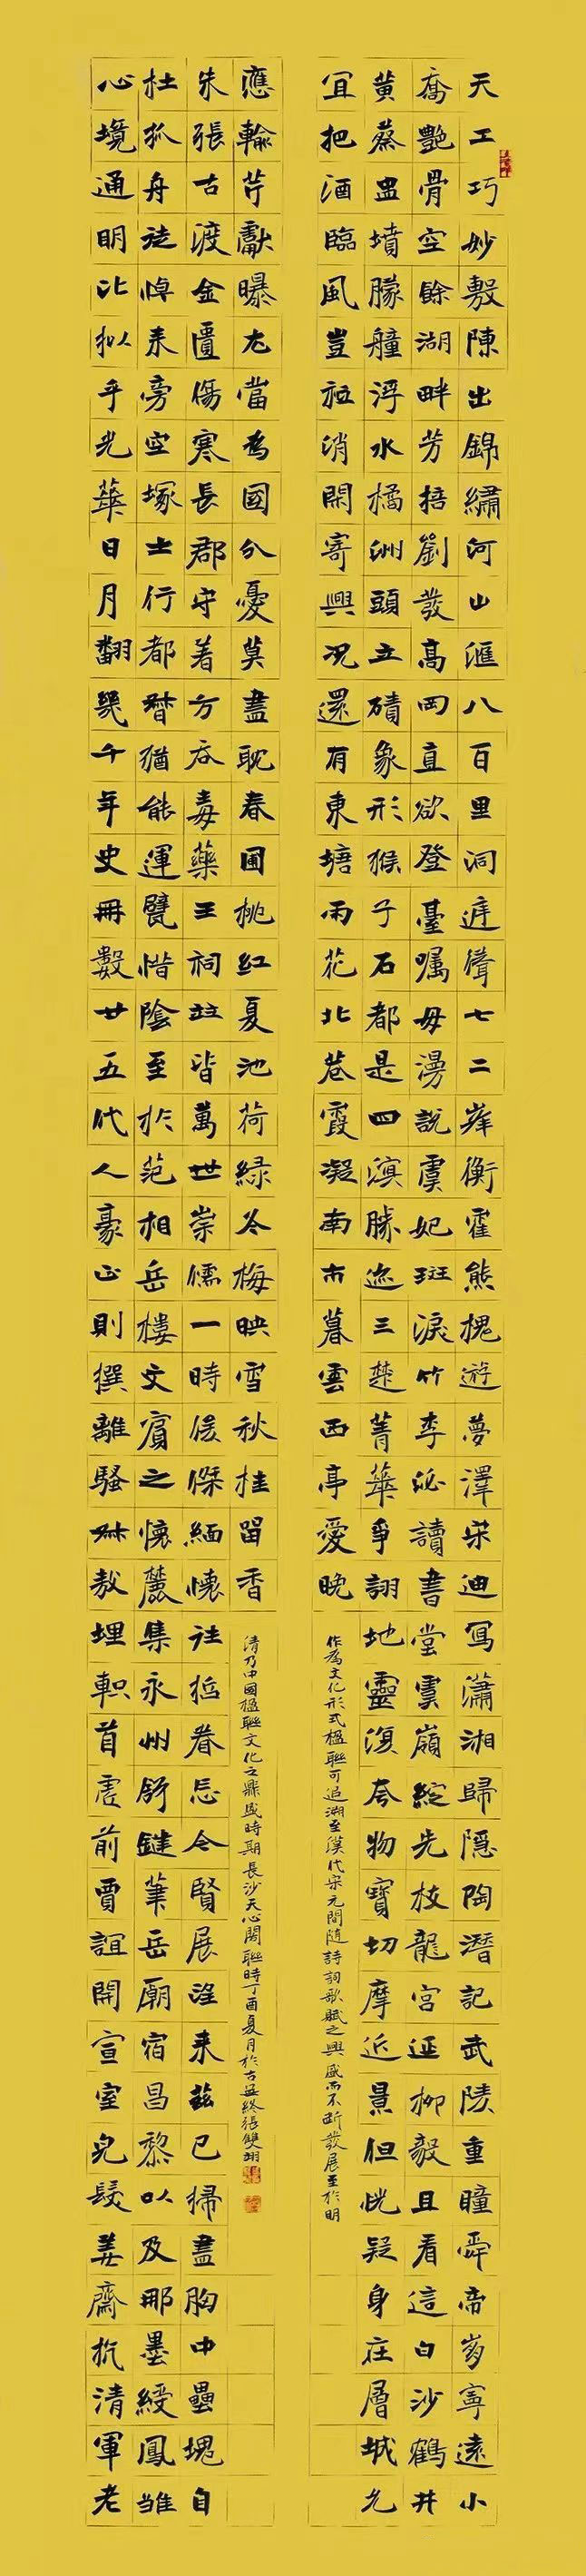 天工巧妙敷陳出錦繡河山滙八百里洞庭聳七二峰衡霍熊槐遊夢澤宋迪寫瀟湘歸隱陶潛記武陵重瞳舜帝崩寧遠小
喬艷骨空餘湖畔芳劉發高岡直欲登臺囑毋漫說虞妃斑淚竹李泌讀書堂雲嶺綻先枝龍宮迓柳毅且看這白沙鶴井
黃蔡墳朦艟浮水橘洲頭立磧象形猴子石都是四濱勝迹三楚菁華爭詡地靈復夸物寶切摩近景但恍疑身在層城允
宜把酒臨風豈祗消閑寄興況還有東塘雨花北巷霞凝南市暮雲西亭愛晚
作為文化形式楹聯可追溯至漢代宋元間隨詩詞歌賦之興盛而不斷發展至於明
心境通明比擬乎光華日月翻幾千年史冊數廿五代人豪正則撰離騷叔敖埋軹首虛前賈誼開宣室完髮姜齋抗清軍老
杜孤舟悼耒旁空塚士行都督猶能運甓惜陰至於范相岳樓文賓之懷麓集永州舒鐵筆岳廟宿昌黎以及那墨綬鳳雛
朱張古渡金匱傷寒長郡守着方吞毒藥王祠竝皆萬世崇儒一時俊傑緬懷往哲眷念今賢展望來茲已掃盡胸中壘塊自
應輸芹獻曝尤當為國分憂莫盡耽春圃桃紅夏池荷綠冬梅映雪秋桂留香
清乃中國楹聯文化之鼎盛時期長沙天心閣聯時丁酉夏月於古張雙翊